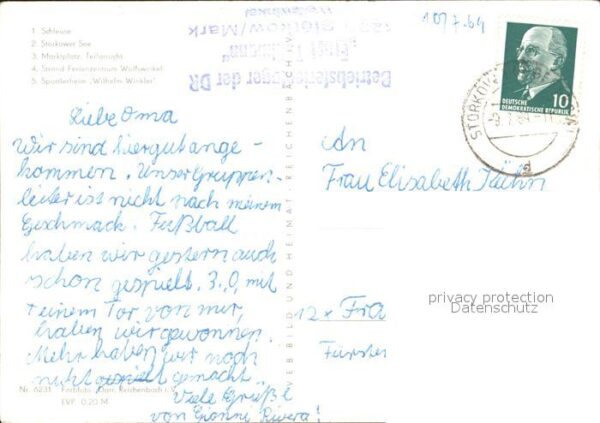 1 Schleuse
2 Storkower See
3 Marktplatz, Teilansicht
4 Strand Ferienzentrum Wolfswinkel
5 Sportlerheim „Wilhelm Winkler“
Betriebsferienlager der DR
Storkow/Mark
10/7.64
DEUTSCHE
DEMOKRATISCHE REPUBLIK
10
STORKOW
Liebe Oma
Wir sind hier gut ange-
kommen. Unser Gruppen-
leiter ist nicht nach meinem
Geschmack. Fußball
haben wir gestern auch
schon gespielt. 3:0, mit
einem Tor von mir,
haben wir gewonnen.
Mehr haben wir noch
nicht gemacht.
Viele Grüße
von Gianni Rivera!
An
Frau Elisabeth Kühn
12 x Fra
Fürsten
VEB BILD UND HEIMAT REICHENBACH I. V.
privacy protection
Datenschutz
Nr. 6231 Farbfoto: Reichenbach i. V.
EVP 0.20 M